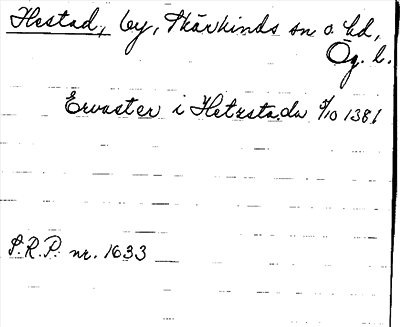 Hestad, by, Skärkinds sn o. hd,
Ög. l.
Ervaster i Hetzstada 9/10 1381
S.R.P. nr. 1633